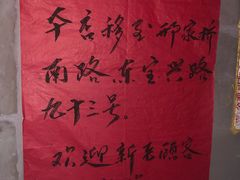 本店移至邢家桥
南路东宝兴路
九十三号。
欢迎新老顾客